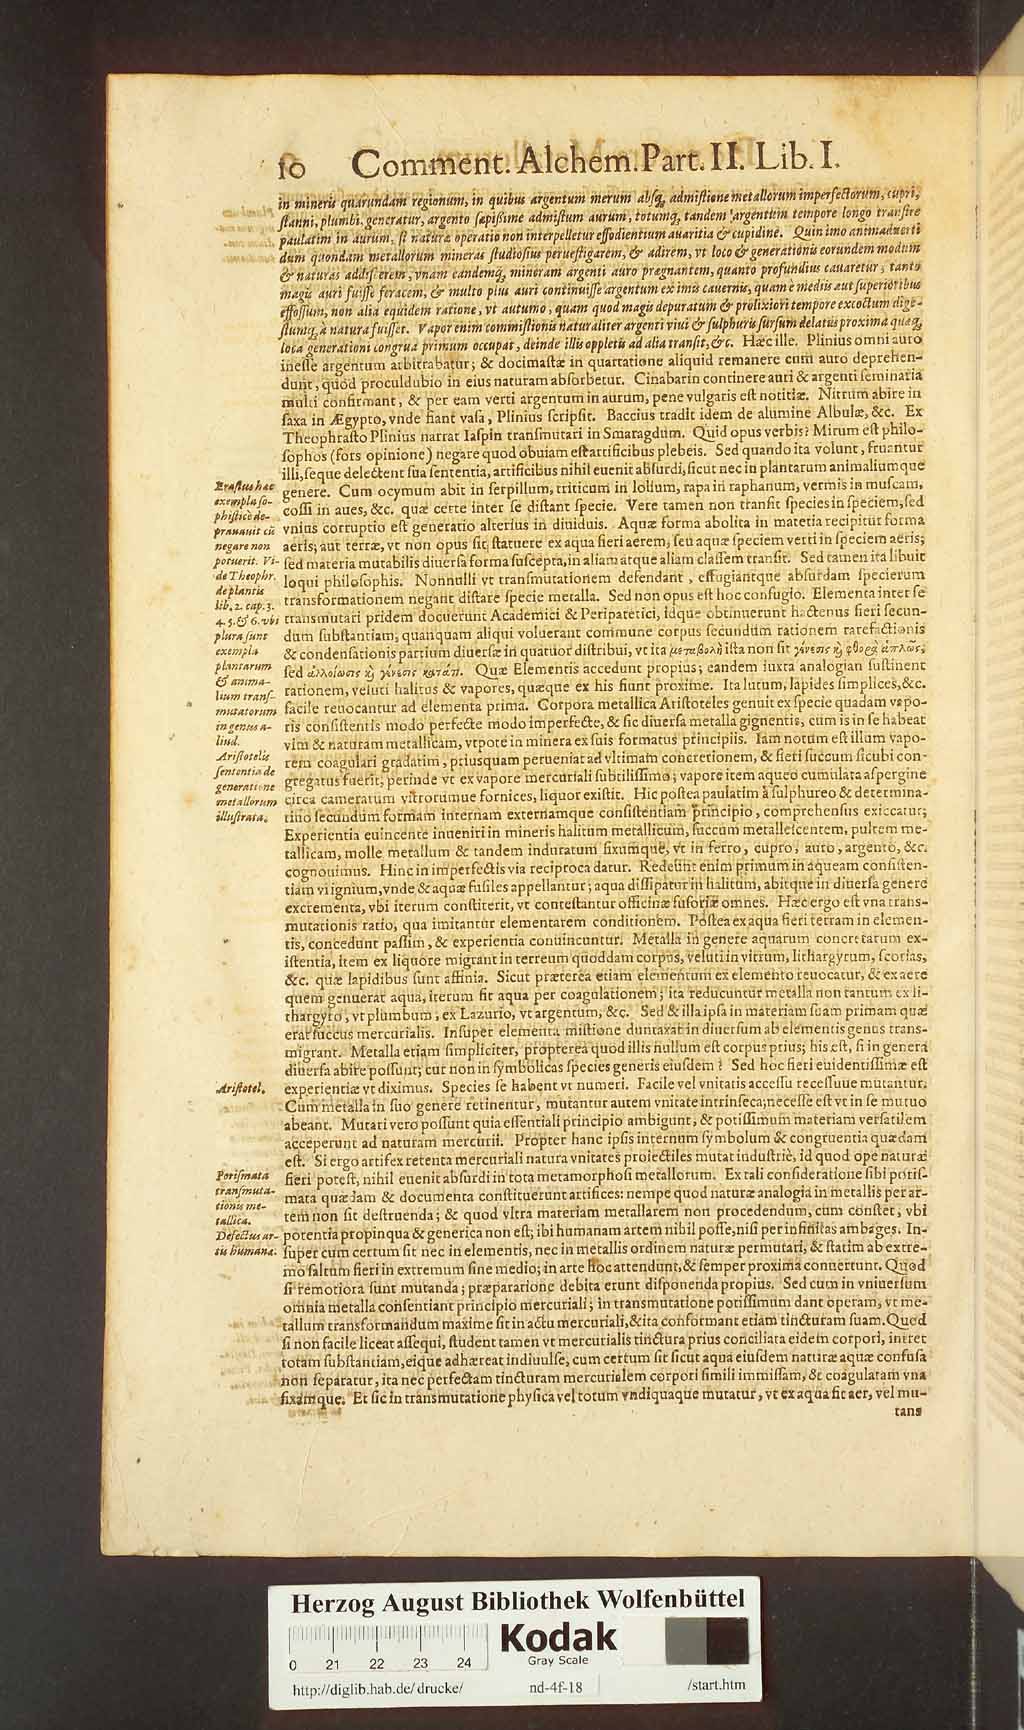 10 Comment. Alchem. Part. II. Lib. I.
in mineris quarundam regionum, in quibus argentum merum absq́, admistione metallorum imperfectorum, cupri,
stanni, plumbi, generatur, argento sæpißime admistum aurum, totumq́, tandem argentum tempore longo transire
paulatim in aurum, si naturæ operatio non interpelletur effodientium auaritia & cupidine. Quin imo animaduerti
dum quondam metallorum mineras studiosius peruestigarem, & adirem, vt loco & generationis eorundem modum
& naturas addiscerem, vnam eandemq́, mineram argenti auro prægnantem, quanto profundius cauaretur, tanto
magis auri fuisse feracem, & multo plus auri continuisse argentum ex imis cauernis, quam è mediis aut superioribus
effossum, non alia equidem ratione, vt autumo, quam quod magis depuratum & prolixiori tempore excoctum dige-
stumq́, a natura fuisset. Vapor enim commistionis naturaliter argenti viui & sulphuris sursum delatus proxima quæq́,
loca generationi congrua primum occupat, deinde illis oppletis ad alia transit, &c. Hæc ille. Plinius omni auro
inesse argentum arbitrabatur; & docimastæ in quartatione aliquid remanere cum auro deprehen-
dunt, quod proculdubio in eius naturam absorbetur. Cinabarin continere auri & argenti seminaria
multi confirmant, & per eam verti argentum in aurum, pene vulgaris est notitiæ. Nitrum abire in
saxa in Ægypto, vnde fiant vasa, Plinius scripsit. Baccius tradit idem de alumine Albulæ, &c. Ex
Theophrasto Plinius narrat Iaspin transmutari in Smaragdum. Quid opus verbis? Mirum est philo-
sophos (fors opinione) negare quod obuiam est artificibus plebeis. Sed quando ita volunt, fruantur
illi, seque delectent sua sententia, artificibus nihil euenit absurdi, sicut nec in plantarum animaliumque
genere. Cum ocymum abit in serpillum, triticum in lolium, rapa in raphanum, vermis in muscam,
cossi in aues, &c. quæ certe inter se distant specie. Vere tamen non transit species in speciem, sed
vnius corruptio est generatio alterius in diuiduis. Aquæ forma abolita in materia recipitur forma
aeris; aut terræ, vt non opus sit statuere ex aqua fieri aerem, seu aquæ speciem verti in speciem aeris;
sed materia mutabilis diuersa forma suscepta, in aliam atque aliam classem transit. Sed tamen ita libuit
loqui philosophis. Nonnulli vt transmutationem defendant, effugiantque absurdam specierum
transformationem negant distare specie metalla. Sed non opus est hoc confugio. Elementa inter se
transmutari pridem docuerunt Academici & Peripatetici, idque obtinuerunt hactenus fieri secun-
dum substantiam, quanquam aliqui voluerant commune corpus secundum rationem rarefactionis
& condensationis partium diuersæ in quatuor distribui, vt ita μεταβολὴ ista non sit γένεσις κỳ φθορὰ ἁπλῶς,
sed ἀλλοίωσις κỳ γένεσις κατάπ. Quæ Elementis accedunt propius; eandem iuxta analogian sustinent
rationem, veluti halitus & vapores, quæque ex his fiunt proxime. Ita lutum, lapides simplices, &c.
facile reuocantur ad elementa prima. Corpora metallica Aristoteles genuit ex specie quadam vapo-
ris consistentis modo perfecte modo imperfecte, & sic diuersa metalla gignentis, cum is in se habeat
vim & naturam metallicam, vtpote in minera ex suis formatus principiis. Iam notum est illum vapo-
rem coagulari gradatim, priusquam perueniat ad vltimam concretionem, & fieri succum sicubi con-
gregatus fuerit, perinde vt ex vapore mercuriali subtilissimo; vapore item aqueo cumulata aspergine
circa camerarum vitrorumue fornices, liquor existit. Hic postea paulatim à sulphureo & determina-
tiuo secundum formam internam externamque consistentiam principio, comprehensus exiccatur;
Experientia euincente inueniri in mineris halitum metallicum, succum metallescentem, pultem me-
tallicam, molle metallum & tandem induratum fixumque, vt in ferro, cupro, auro, argento, &c.
cognouimus. Hinc in imperfectis via reciproca datur. Redeunt enim primum in aqueam consisten-
tiam vi ignium, vnde & aquæ fusiles appellantur; aqua dissipatur in halitum, abitque in diuersa genere
excrementa, vbi iterum constiterit, vt contestantur officinæ fusoriæ omnes. Hæc ergo est vna trans-
mutationis ratio, qua imitantur elementarem conditionem. Postea ex aqua fieri terram in elemen-
tis, concedunt passim, & experientia conuincuntur. Metalla in genere aquarum concretarum ex-
istentia, item ex liquore migrant in terreum quoddam corpus, veluti in vitrum, lithargyrum, scorias,
&c. quæ lapidibus sunt affinia. Sicut præterea etiam elementum ex elemento reuocatur, & ex aere
quem genuerat aqua, iterum fit aqua per coagulationem; ita reducuntur metalla non tantum ex li-
thargyro, vt plumbum; ex Lazurio, vt argentum, &c. Sed & illa ipsa in materiam suam primam quæ
erat succus mercurialis. Insuper elementa mistione duntaxat in diuersum ab elementis genus trans-
migrant. Metalla etiam simpliciter, propterea quod illis nullum est corpus prius; his est, si in genera
diuersa abire possunt; cur non in symbolicas species generis eiusdem? Sed hoc fieri euidentissimæ est
experientiæ vt diximus. Species se habent vt numeri. Facile vel vnitatis accessu recessuue mutantur.
Cum metalla in suo genere retinentur, mutantur autem vnitate intrinseca; necesse est vt in se mutuo
abeant. Mutari vero possunt quia essentiali principio ambigunt, & potissimum materiam versatilem
acceperunt ad naturam mercurii. Propter hanc ipsis internum symbolum & congruentia quædam
est. Si ergo artifex retenta mercuriali natura vnitates proiectiles mutat industriè, id quod ope naturæ
fieri potest, nihil euenit absurdi in tota metamorphosi metallorum. Ex tali consideratione sibi potis-
mata quædam & documenta constituerunt artifices: nempe quod naturæ analogia in metallis per ar-
tem non sit destruenda; & quod vltra materiam metallarem non procedendum, cum constet, vbi
potentia propinqua & generica non est, ibi humanam artem nihil posse, nisi per infinitas ambages. In-
super cum certum sit nec in elementis, nec in metallis ordinem naturæ permutari, & statim ab extre-
mo saltum fieri in extremum sine medio; in arte hoc attendunt, & semper proxima conuertunt. Quod
si remotiora sunt mutanda; præparatione debita erunt disponenda propius. Sed cum in vniuersum
omnia metalla consentiant principio mercuriali; in transmutatione potissimum dant operam, vt me-
tallum transformandum maxime sit in actu mercuriali, & ita conformant etiam tincturam suam. Quod
si non facile liceat assequi, student tamen vt mercurialis tinctura prius conciliata eidem corpori, intret
totam substantiam, eique adhæreat indiuulse, cum certum sit sicut aqua eiusdem naturæ aquæ confusa
non separatur, ita nec perfectam tincturam mercurialem corpori simili immissam, & coagulatam vna
fixamque. Et sic in transmutatione physica vel totum vndiquaque mutatur, vt ex aqua fit aer, vel mu-
tans
Erastus hæc
exempla so-
phisticè de-
prauauit cū
negare non
potuerit. Vi-
de Theophr.
de plantis
lib. 2. cap. 3.
4. 5. & 6. vbi
plura sunt
exempla
plantarum
& anima-
lium trans-
mutatorum
in genus a-
liud.
Aristotelis
sententia de
generatione
metallorum
illustrata.
Aristotel.
Porismata
transmuta-
tionis me-
tallica.
Defectus ar-
tis humanæ.
Herzog August Bibliothek Wolfenbüttel
0 21 22 23 24
Kodak
Gray Scale
http://diglib.hab.de/drucke/ nd-4f-18 /start.htm